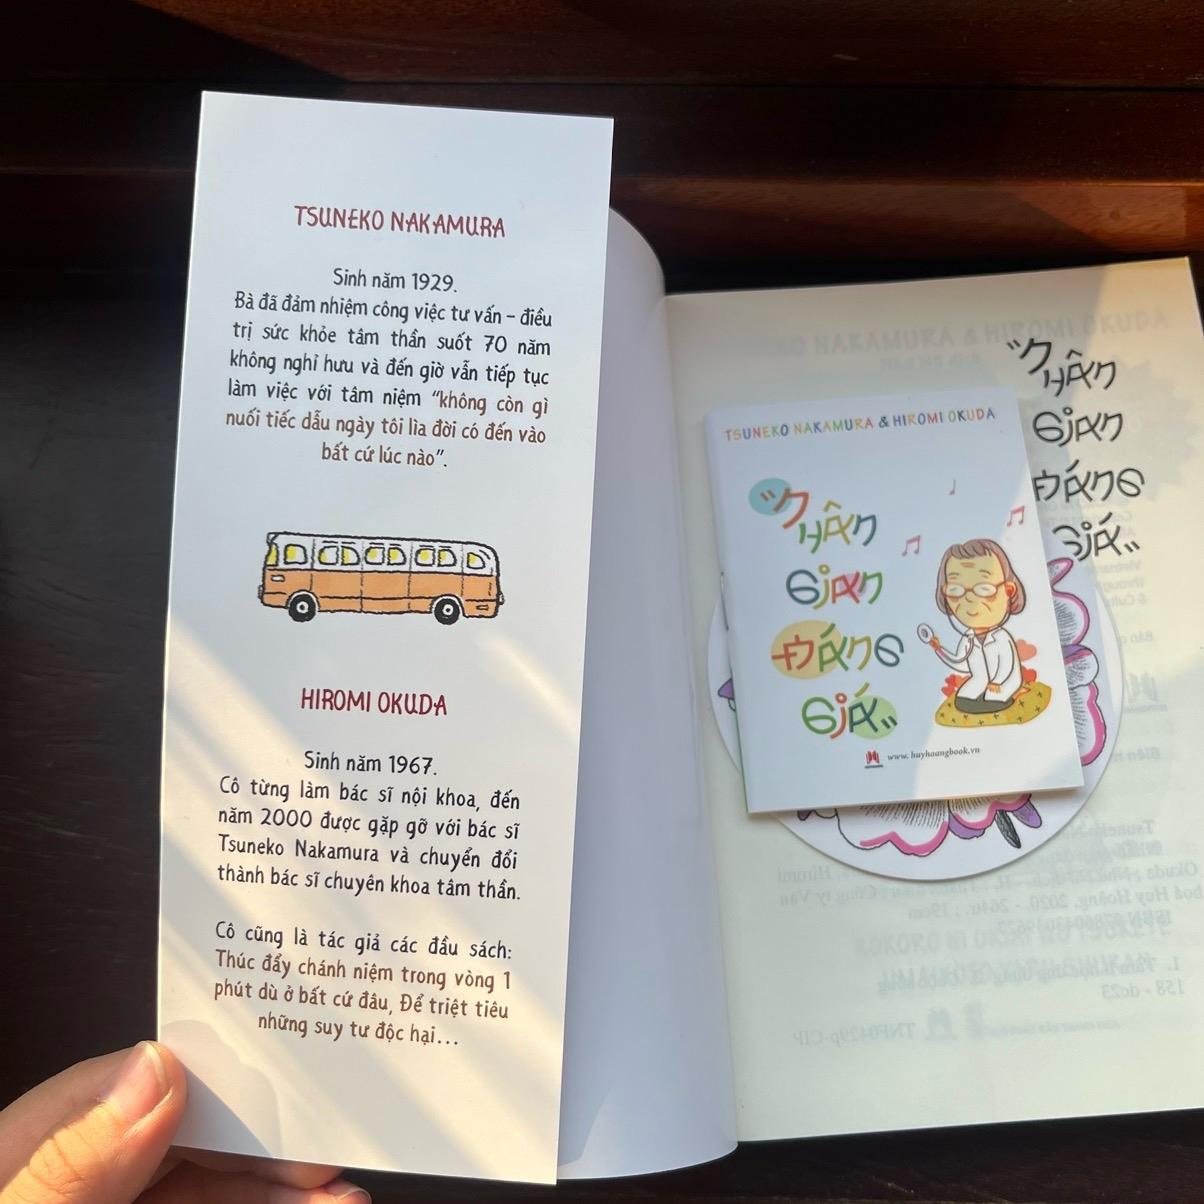 TSUNEKO NAKAMURA
Sinh năm 1929.
Bà đã đảm nhiệm công việc tư vấn – điều
trị sức khỏe tâm thần suốt 70 năm
không nghỉ hưu và đến giờ vẫn tiếp tục
làm việc với tâm niệm "không còn gì
nuối tiếc dẫu ngày tôi lìa đời có đến vào
bất cứ lúc nào".
HIROMI OKUDA
Sinh năm 1967.
Cô từng làm bác sĩ nội khoa, đến
năm 2000 được gặp gỡ với bác sĩ
Tsuneko Nakamura và chuyển đổi
thành bác sĩ chuyên khoa tâm thần.
Cô cũng là tác giả các đầu sách:
Thúc đẩy chánh niệm trong vòng 1
phút dù ở bất cứ đâu, Để triệt tiêu
những suy tư độc hại...
TSUNEKO NAKAMURA & HIROMI OKUDA
"Nhân
Gian
Đáng
Giá"
www.huyhoangbook.vn
"Nhân
Gian
Đáng
Giá"